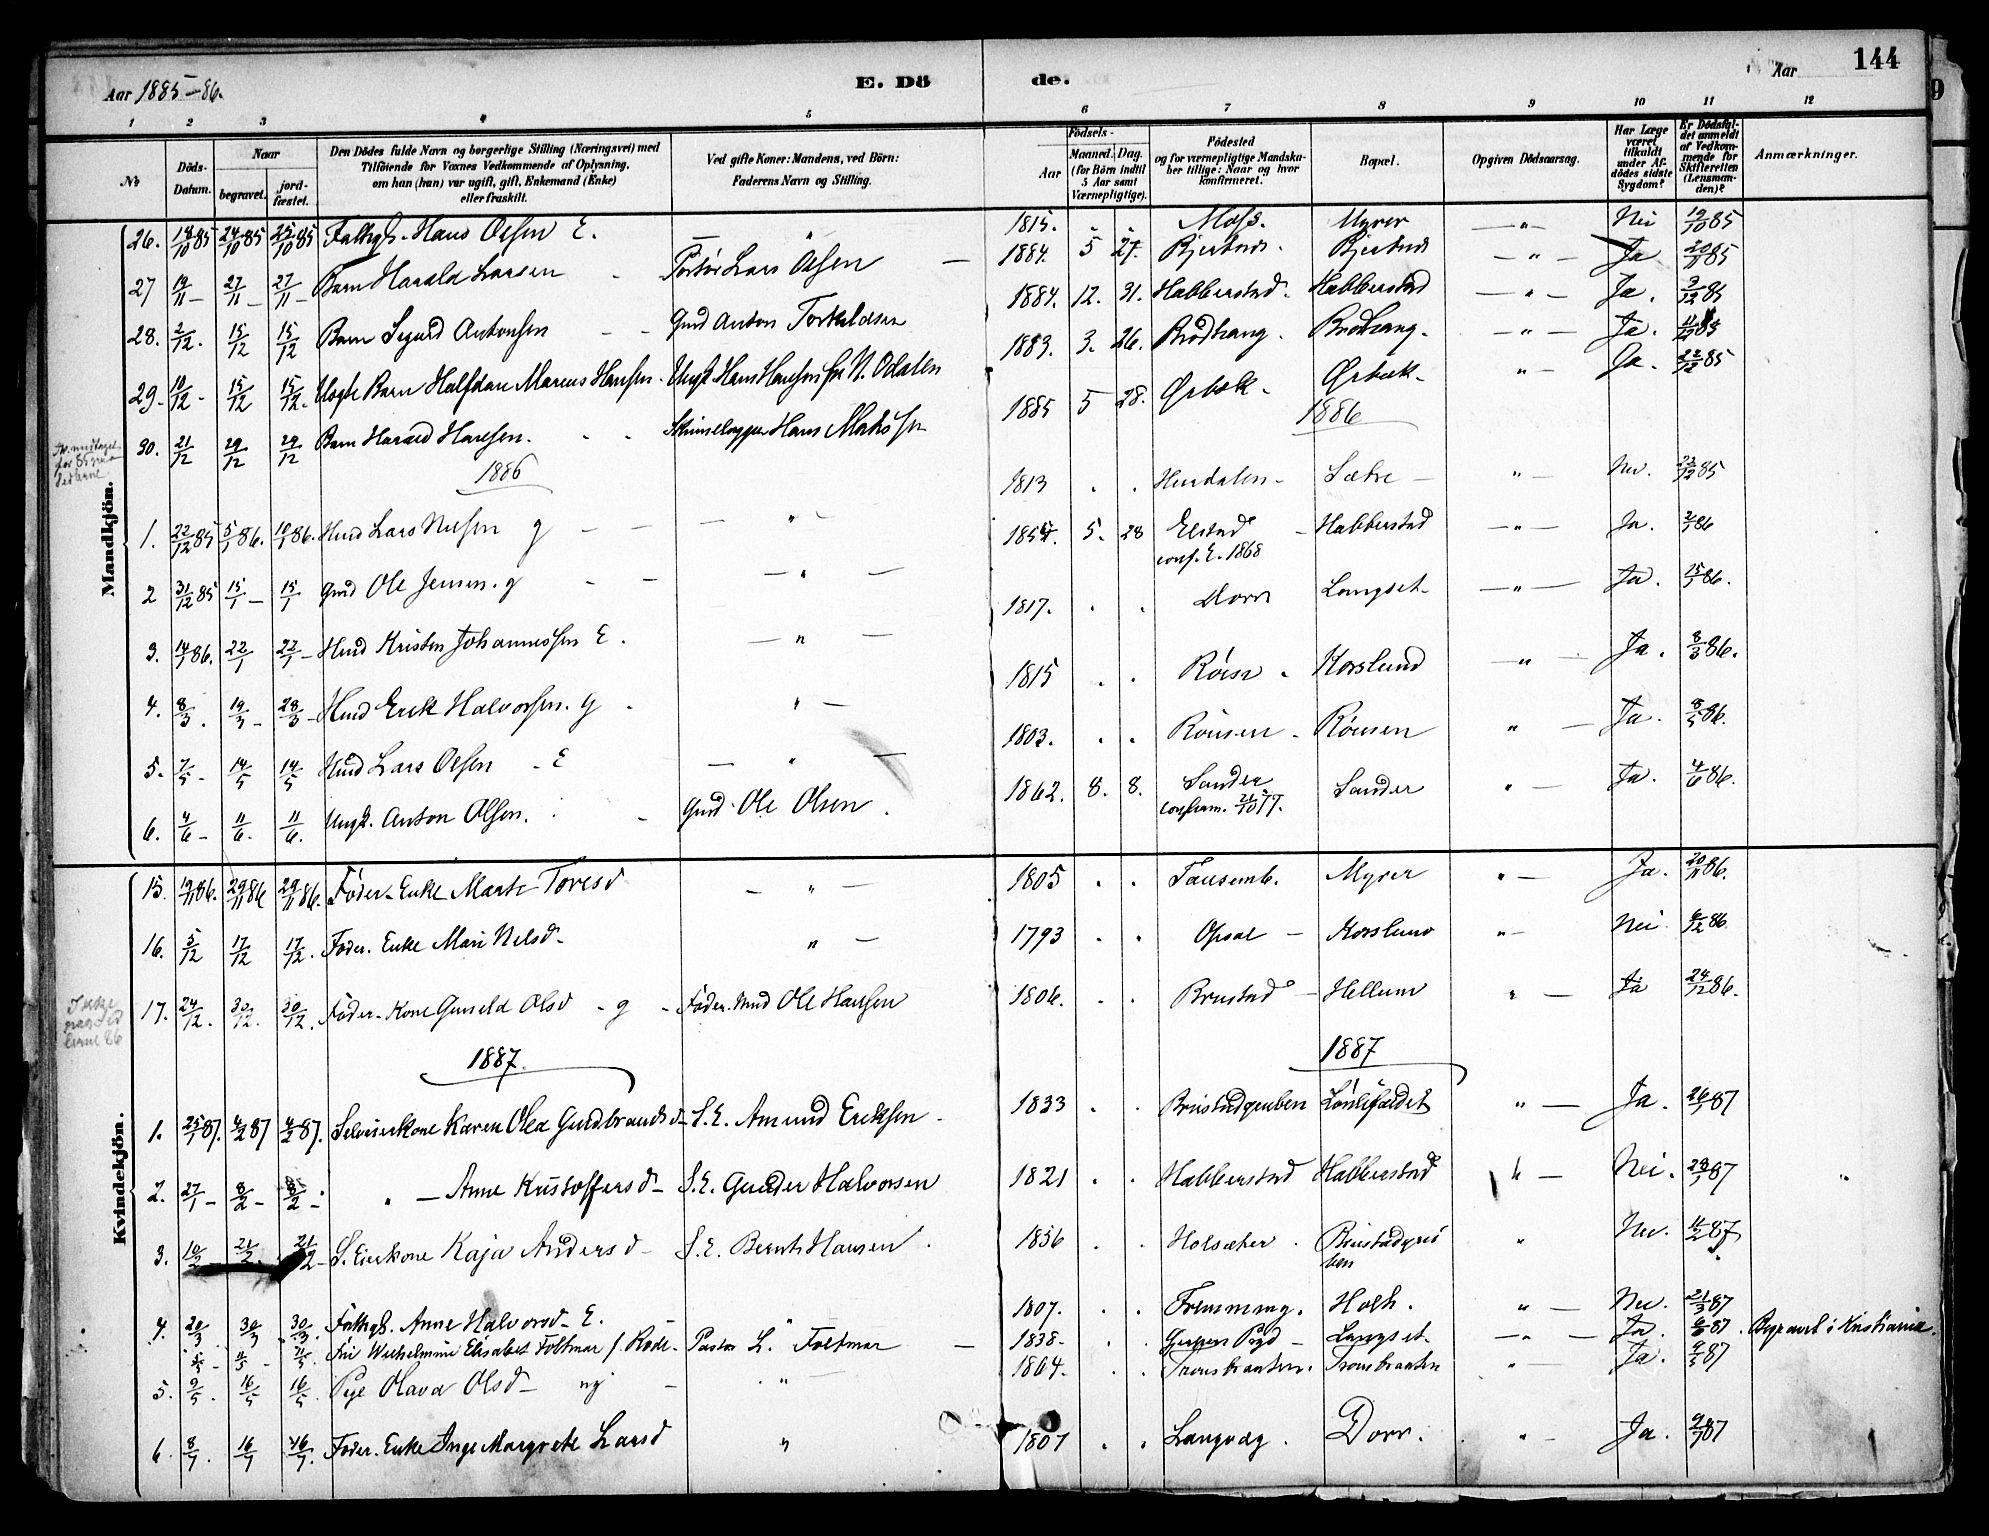 Aar 1885-86.
E. Döde.
Aar
144
1 2 3 4 5 6 7 8 9 10 11 12
№
Döds-Datum.
Naar
begravet.
jord-fæstet.
Den Dödes fulde Navn og borgerlige Stilling (Næringsvei) med
Tilföiende for Voxnes Vedkommende af Oplysning,
om han (hun) var ugift, gift, Enkemand (Enke)
eller fraskilt.
Ved gifte Koner: Mandens, ved Börn:
Faderens Navn og Stilling.
Födsels-
Aar
Maaned. Dag.
(for Börn indtil
5 Aar samt
Værnepligtige).
Födested
og for værnepligtige Mandska-
ber tillige: Naar og hvor
konfirmeret.
Bopæl.
Opgiven Dödsaarsag.
Har Læge
været
tilkaldt
under Af-
dödes sidste
Sygdom?
Er Dödsfal-
det anmeldt
af Vedkom-
mende for
Skifteretten
(Lensman-
den)?
Anmærkninger.
Mandkjön.
26. 18/10 85 24/10 85 25/10 85 Fattigl. Hans Olsen E. " 1815. Moss. Myrer — " — Nei 19/10 85
27 19/11 — 27/11 — 27/11 — Barn Harald Larsen Portør Lars Olsen — 1884. 5 27. Bjerstad. Bjerstad — " — Ja 20/11 85
28. 2/12. 15/12 15/12 Barn Sigurd Antonsen Gmd Anton Torkildsen 1884. 12. 31. Habberstad. Habberstad — " — Ja. 3/12 85
29. 10/12 - 15/12 15/12. Uægte Barn Halfdan Marius Hansen. Ungk. Hans Hansen fra N. Odalen 1883. 3. 26. Brodtang. Brodtang. — " — Ja. 11/12 85
30. 21/12 29/12 29/12 Barn Harald Hansen. Skindlægger Hans Mathisen 1885 5 28. Ørbæk. Ørbæk. " — Ja. 22/12 85
1886 1886
1. 22/12 85 5/1 86. 10/1 86. Hmd Lars Nilsen g — — — " — 1813 . . Hurdalen — Sætre — " — Nei. 23/12 85
2 31/12 85 15/1 — 15/1 Gmd Ole Jensen. g — — — " — 1854. 5. 28 Elstad conf. E. 1868 — Habberstad — " — Ja. 2/1 86
3. 14/1 86. 22/1 22/1 — Hmd Kristen Johannessen E. — " — 1817. . . Dorr Langset. — " — Ja. 15/1 86.
4. 8/3. 19/3 — 28/3 — Hmd Erik Halvorsen. g . " — 1815 . . Røise . Korslund — " — Ja. 8/3 86.
5. 7/5 - 14/5 14/5 Hmd Lars Olsen - E — " — 1803. . . Rönsen. Rönsen " — Ja. 8/5 86.
6. 4/6 — 11/6. 11/6. Ungk. Anton Olsen. Gmd. Ole Olsen. 1862. 8. 8. Sander confirm. 21/10 77. Sander " — Ja. 4/6 86.
Kvindekjön.
15. 19/11 86. 29/11 86 29/11 86. Föder. Enke Marte Toresd — " — 1805 . . Tausemb. Myrer " — Ja. 20/11 86.
16. 5/12 17/12 17/12. Föder. Enke Mari Nelsd. " — 1793 . . Opsal — Korslund " - Nei. 6/12 86.
17. 24/12. 30/12. 30/12. Föder. Kone Gunild Olsd - g - Föder. Md Ole Hansen 1806. . . Brustad — Hellum " — Ja 24/12 86.
1887. 1887
1. 25/1 87. 4/2 87 4/2 87. Selveierkone Karen Olea Gudbrandsd. S.E. Amund Eriksen. 1833 . . Brustadgruben " — Ja. 26/1 87
2. 27/1 — 8/2 — 8/2 . " — Anne Kristoffersd — S.E. Gunder Halvorsen 1821 . . Habberstad Habberstad " — Nei. 28/1 87
3. 10/2 21/2. 21/2 - S. Eierkone Kaja Andersd — S.E. Bernt Hansen. 1836 . . Holsæter. Brustadgruben " Nei. 11/2 87
4. 20/3 30/3 30/3. Fattigl. Anne Halvorsd. E. " 1807. . . Fremming. Holh. " — Nei. 21/3 87
Fru Wilhelmine Elisabet Foltmar f. Rode. Pastor L. Foltmar — 1838. . . Langset. — " — Ja. 87. Begravet i Kristiania.
5. 9/5. 16/5 16/5. Pige Olava Olsd — ug — . " — 1864. . . Tronsbraaten. Tronsbraaten " — Ja. 87
6. 8/7. 16/7 16/7. Föder. Enke Inge Margrete Larsd " 1807 . . Langvæg. Dorr. " — Ja. 9/7 87